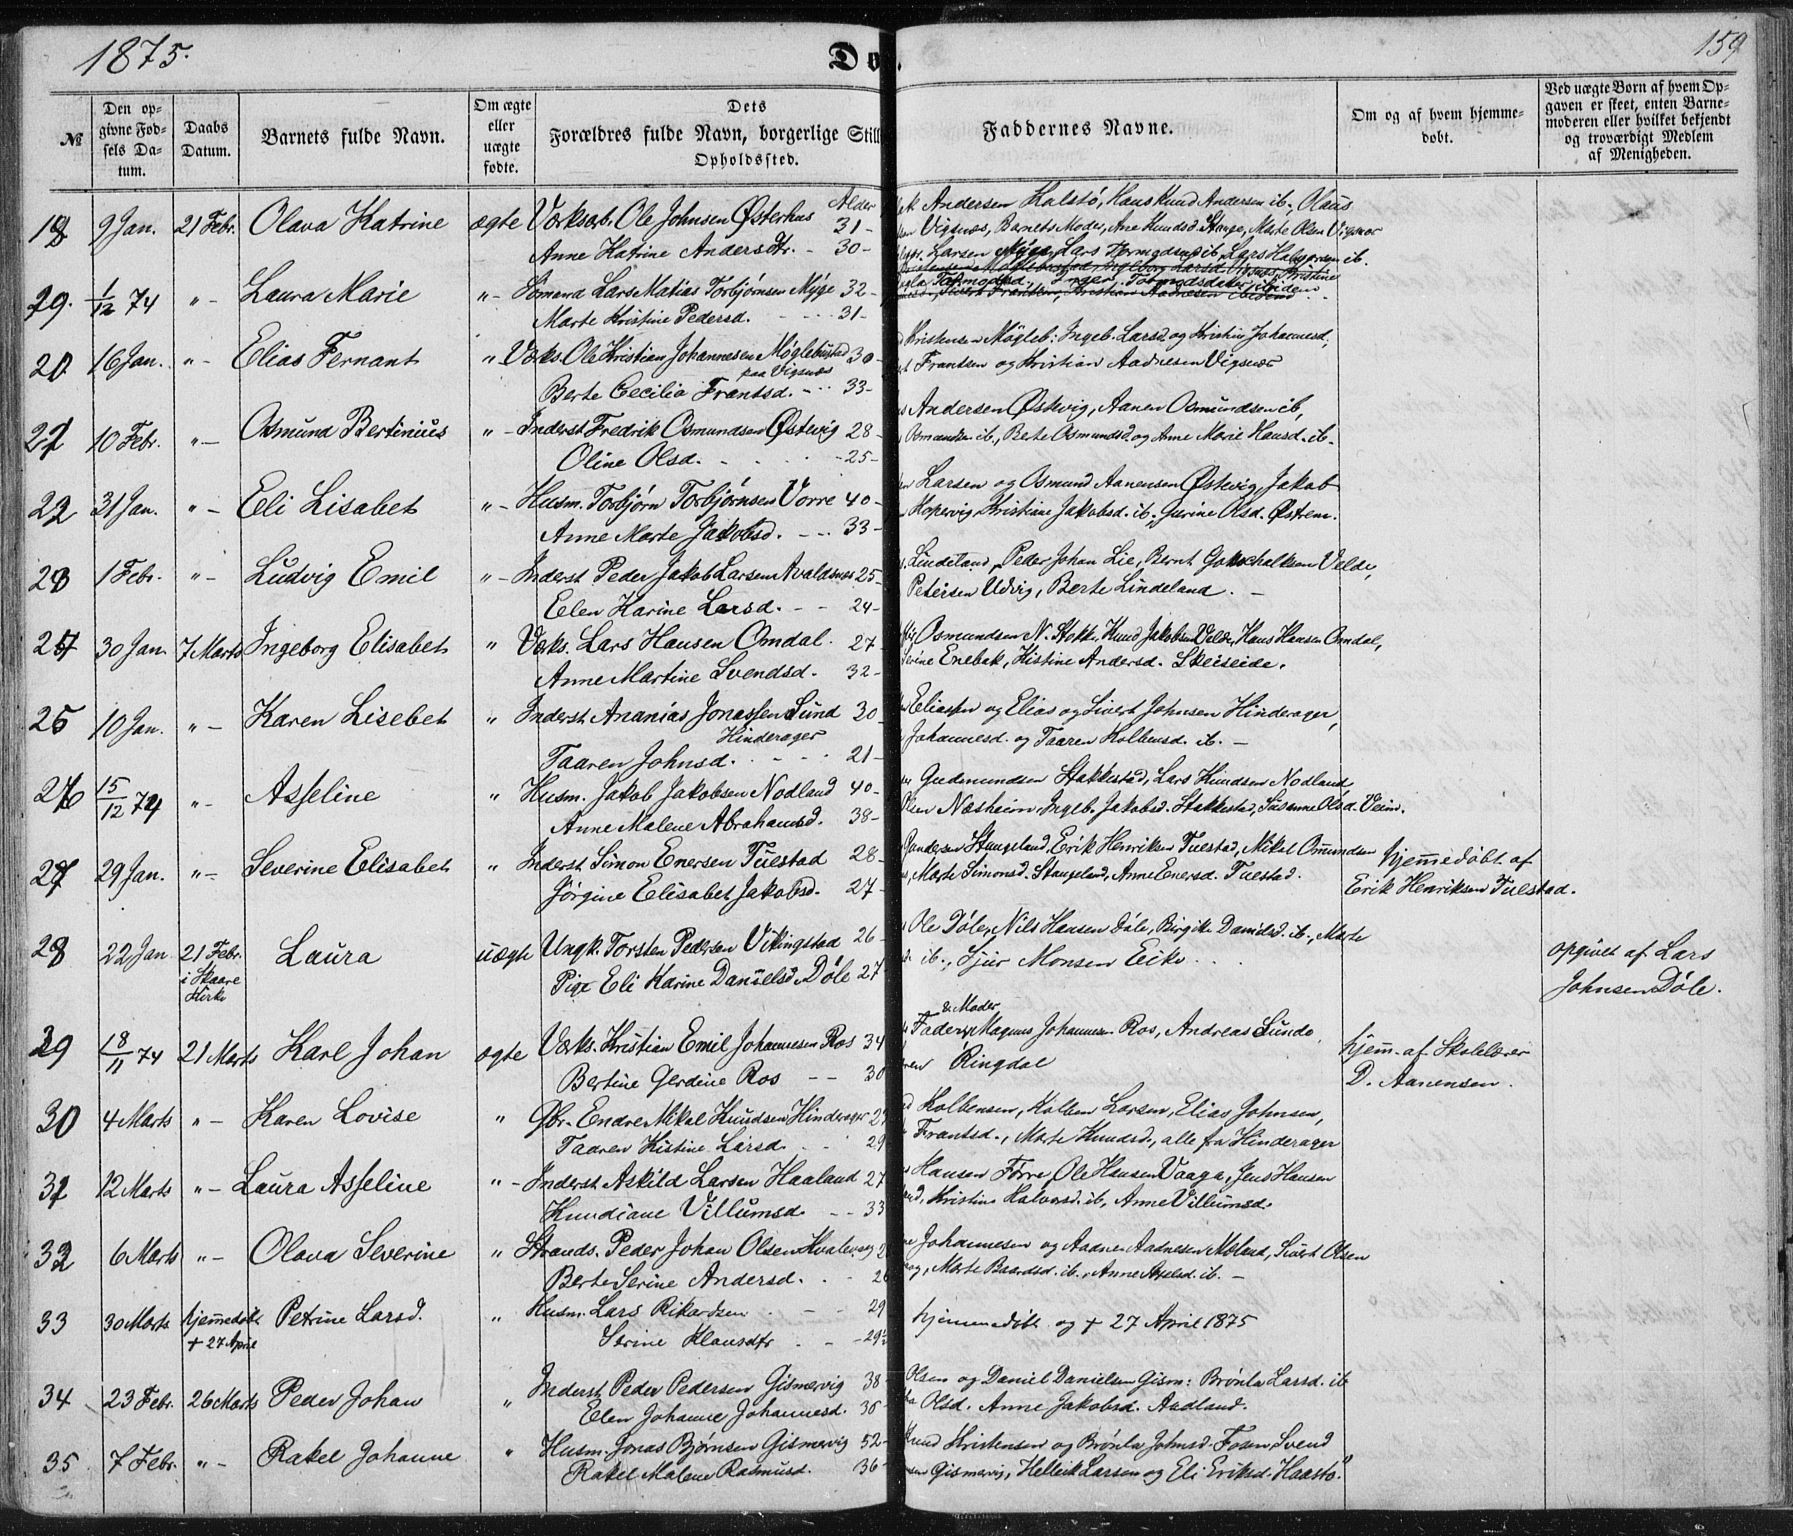 1875.
159
№
Den opgivne Fødsels Datum.
Daabs Datum.
Barnets fulde Navn.
Om ægte eller uægte fødte.
Dets Forældres fulde Navn, borgerlige Still
Opholdssted.
Faddernes Navne.
Om og af hvem hjemmedøbt.
Ved uægte Børn af hvem Opgaven er skeet, enten Barnemoderen eller hvilket bekjendt og troværdigt Medlem af Menigheden.
Alder
18 9 Jan. 21 Febr. Olava Katrine ægte Værksarb. Ole Johnsen Østerhus 31 -
Anne Katrine Andersdtr. - 30 -
Andersen Kalstø, Hans Knud Andersen ib., Olaus
Vigsnæs, Barnets Moder, Ane Knudsd Stange, Marte Olsen Vigsnæs
19. 1/12 74 " - Laura Marie " - Sømand Lars Matias Torbjørnsen Myge 32 -
Marte Kristine Pedersd. - 31 -
Larsen Myge, Lars Tormodsen ib, Lars Halvorsen ib.
20 16 Jan. " - Elias Fernant " Værks. Ole Kristian Johannesen Møglebustad 30 -
paa Vigsnæs
Berte Cecilia Frantsd. - 33 -
Kristensen Møgleb: Ingeb. Larsd og Kristine Johannesd,
Frantsen og Kristian Aadnesen Vigsnæs
21 10 Febr. " - Osmund Bertinius " - Inderst Fredrik Osmundsen Østevig 28 -
Oline Olsd. - 25 -
Andersen Østevig, Aanen Osmundsen ib,
Osmundsen ib., Berte Osmundsd og Anne Marie Hansd. ib.
22 31 Jan. " - Eli Lisabet " - Husm. Torbjørn Torbjørnsen Vorre 40 -
Anne Marte Jakobsd. - 33 -
Larsen og Osmund Aanensen Østevig, Jakob
Kopervig, Kristine Jakobsd. ib., Gurine Olsd. Østrem.
23 1 Febr. " - Ludvig Emil " - Inderst Peder Jakob Larsen Avaldsnæs 25 -
Elen Karine Larsd. - - 24 -
Lindeland, Peder Johan Lie, Bernt Gotschalksen Velde,
Petersen Udvig, Berte Lindeland. -
24 30 Jan. 7 Marts Ingeborg Elisabet " Værks. Lars Hansen Omdal. 27
Anne Martine Svendsd. 32 -
Osmundsen N. Stokk. Knud Jakobsen Velde, Hans Hansen Omdal,
Serine Enebak, Kistine Andersd. Skeiseide.
25 10 Jan. " - Karen Lisebet " Inderst Ananias Jonassen Sund 30 -
Hinderager
Taaren Johnsd. 21 -
Eliassen og Elias og Sivert Johnsen Hinderager,
Johannesd. og Taaren Kolbensd. ib. -
26 15/12 74 " - Asseline " Husm. Jakob Jakobsen Nodland 40 -
Anne Malene Abrahamsd. 38 -
Gudmundsen Stakkestad, Lars Knudsen Nodland,
Olsen Næsheim, Ingeb. Jakobsd. Stakkestad, Susanne Olsd. Veim.
27 29 Jan. " - Severine Elisabet " Inderst Simon Enersen Tuestad 28 -
Jørgine Elisabet Jakobsd. 27 -
Gundersen Stangeland, Erik Henriksen Tuestad, Mikal Omundsen
Marte Simonsd. Stangeland, Anne Enersd. Tuestad.
hjemmedøbt af
Erik Henriksen Tuestad.
28 22 Jan 21 Febr. i Skaare Kirke Laura uægte Ungk. Torsten Pedersen Vikingstad 26 -
Pige Eli Karine Danielsd. Døle 27
Ole Døle, Nils Hansen Døle, Birgithe Danielsd. ib., Marte
ib., Sjur Monsen Eeike
opgivet af Lars
Johnsen Døle.
29 18/11 74 21 Marts Karl Johan ægte Værks. Kristian Emil Johannesen Ros 34
Bertine Gerdine Ros - - 30
& Moder
Fader, Magnus Johannesen Ros, Andreas Sunde,
Ringdal
hjem. af Skolelærer
D. Aanensen.
30 4 Marts " - Karen Lovise " Gbr. Endre Mikal Knudsen Hinderager
Taaren Kistine Larsd. 29
Kolbensen, Kolben Larsen, Elias Johnsen,
Frantsd., Marte Knudsd., alle fra Hinderager
31 12 Marts " - Laura Asseline " - Inderst Askild Larsen Haaland 27
Knudiane Villumsd. - - 33
Hansen Førre, Ole Hansen Vaaga, Jens Hansen
Kristine Halvorsd. ib, Anne Villumsd.
32 6 Marts " - Olava Severine " Strands. Peder Johan Olsen Kvalevaag
Berte Serine Andersd. 26
Johannesen og Aadne Aadnesen Mæland, Sivert Olsen
Marte Baardsd. ib., Anne Axelsd. ib. -
33 30 Marts hjemmedøbt + 27 April Petrine Larsd. " Husm. Lars Rikardsen - 29
Serine Klausdtr. - 29
hjemmedøbt og + 27 April 1875
34 23 Febr. 26 Marts Peder Johan " Inderst Peder Pedersen Gismervig 38 -
Elen Johanne Johannesd. 36 -
Olsen og Daniel Danielsen Gism: Brønla Larsd. ib
Olsd. Anne Jakobsd. Aadland.
35 7 Febr. " - Rakel Johanne " Husm. Jonas Bjørnsen Gismervig 52 -
Rakel Malene Rasmusd. 36 -
Knud Kristensen og Brønla Johnsd. Fosen, Svend
Gismervig, Helleik Larsen og Eli Eriksd. Haastø."